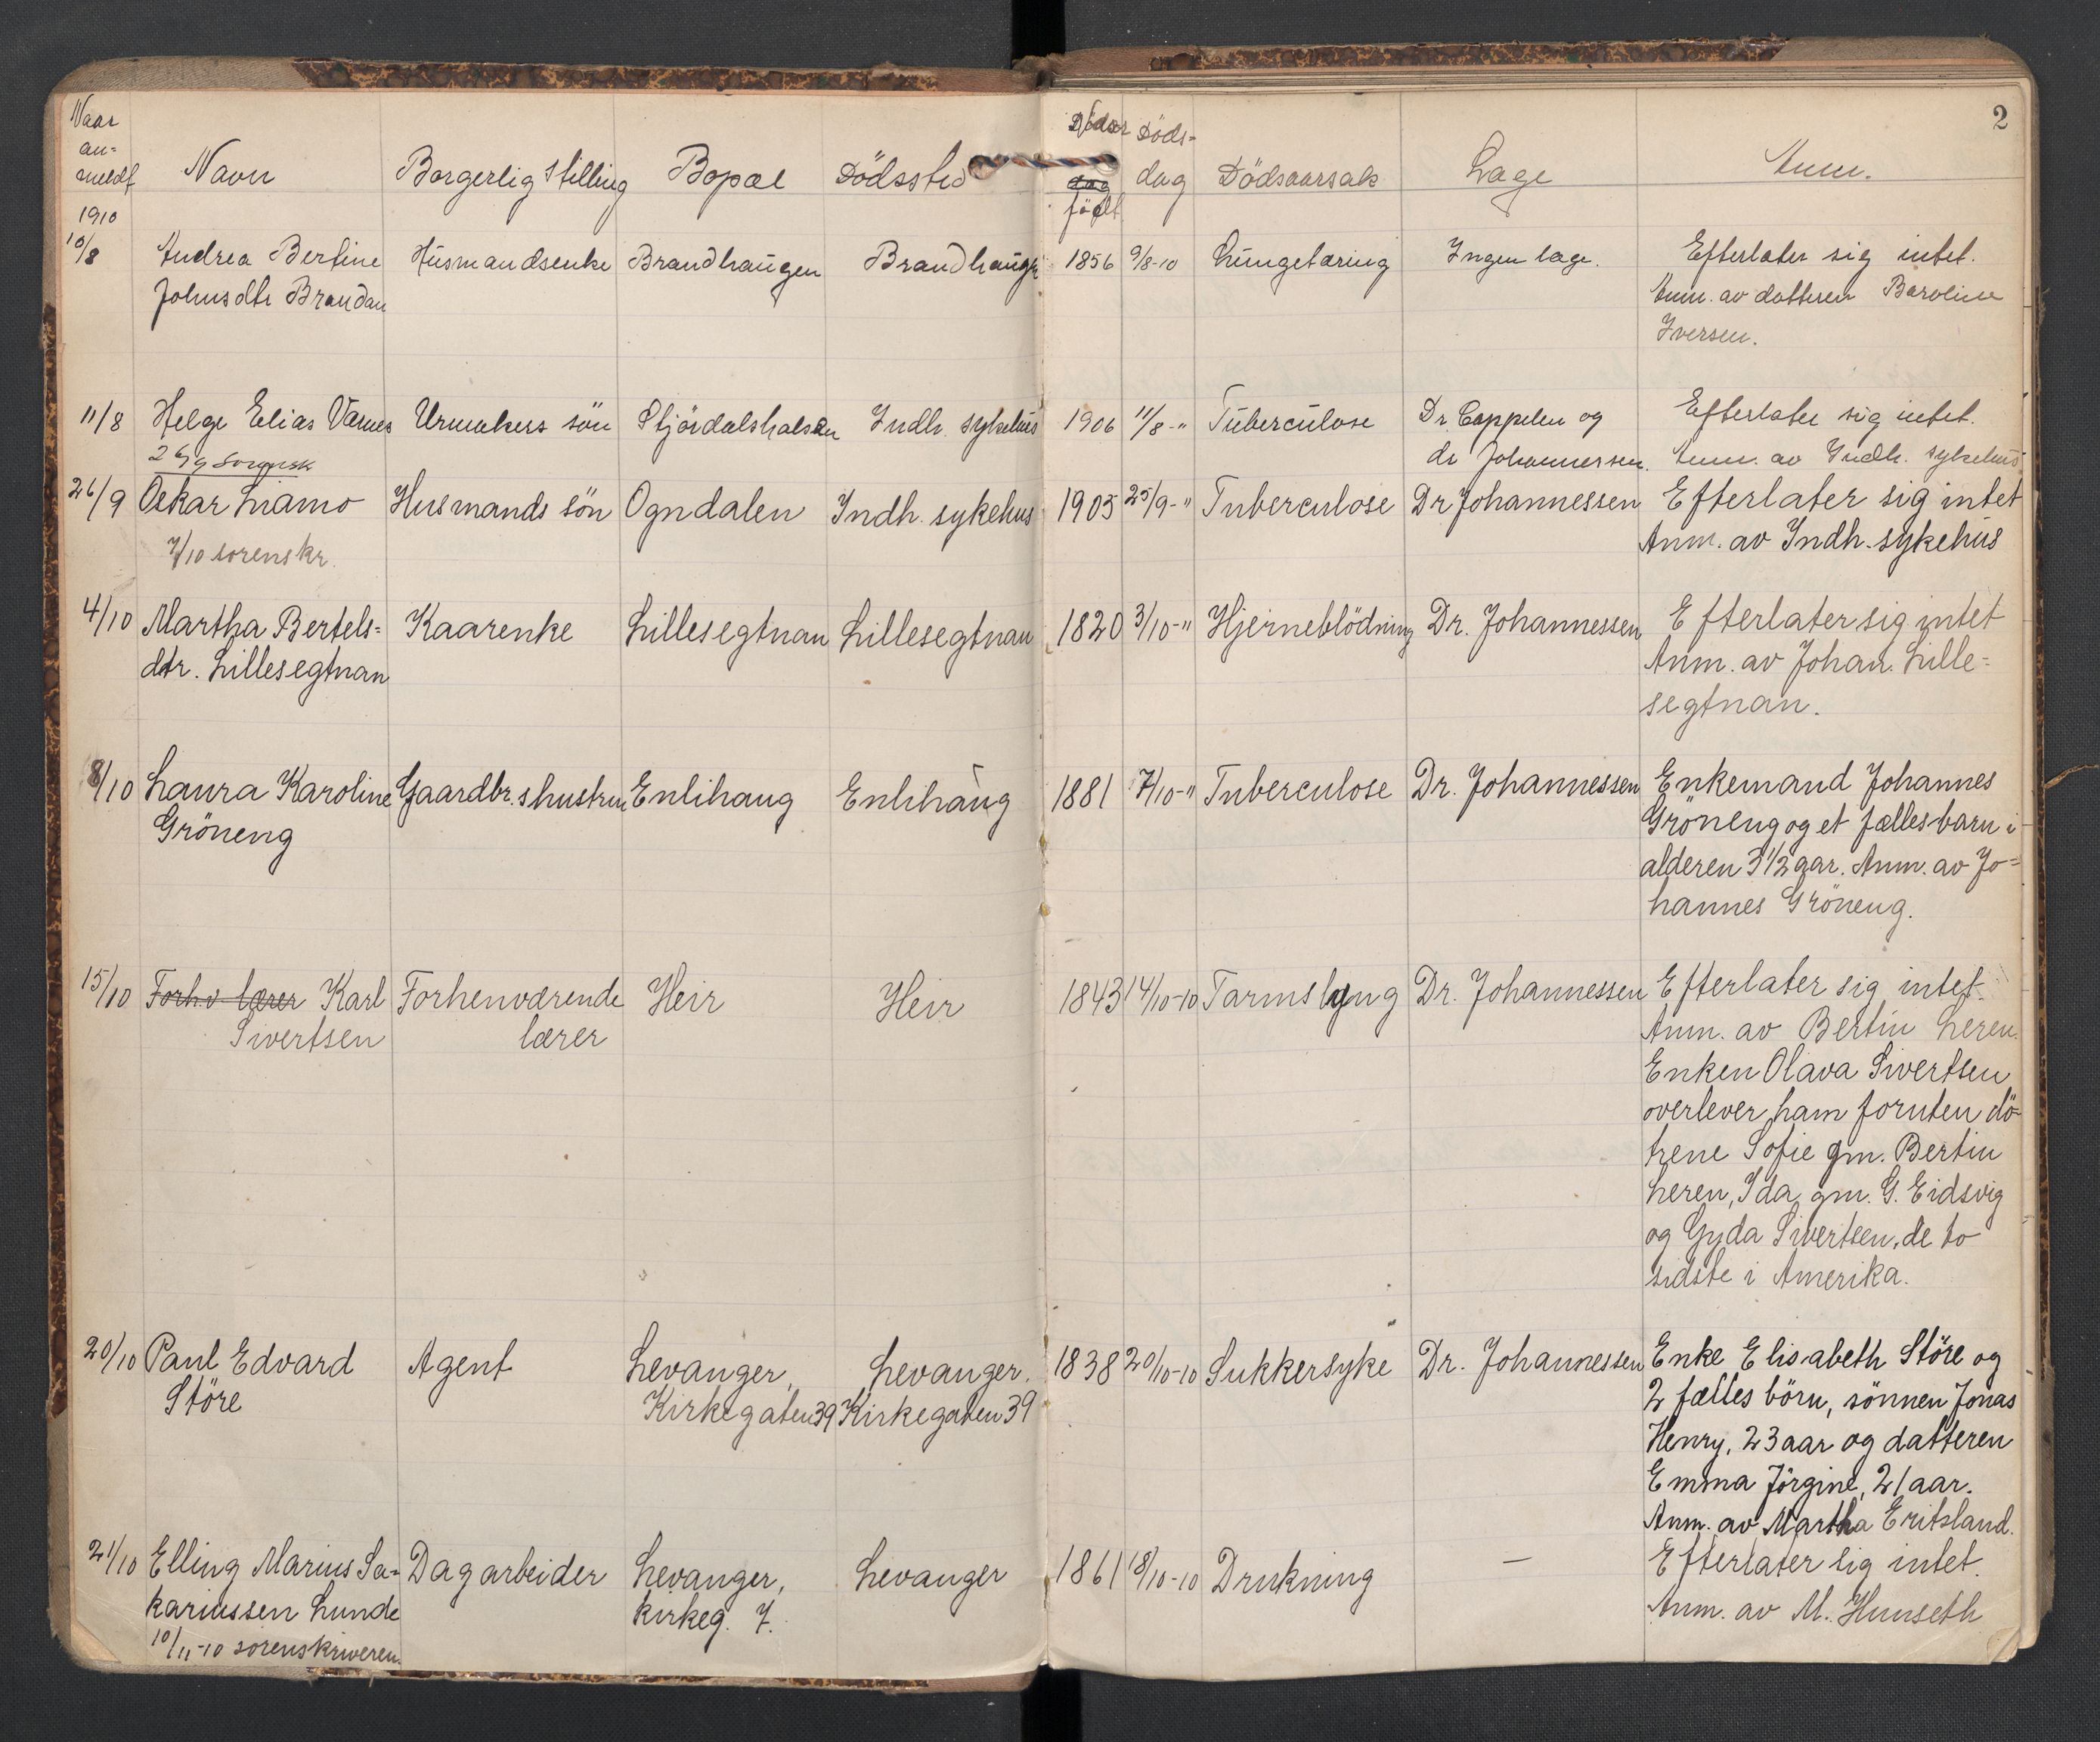 2
Naar an= meldt Navn Borgerlig stilling Bopæl Dödssted födt Döds= dag Dödsaarsak Læge Anm.
1910
10/8 Andrea Bertine Husmandsenke Brandhaugen Brandhaugen 1856 9/8-10 Lungetæring Ingen læge. Efterlater sig intet.
Johnsdtr Brandan Anm. av datteren Baroline
Iversen.
11/8 Helge Elias Værnes Urmakers sön Stjördalshalsen Indh. sykehus 1906 11/8-" Tuberculose Dr Cappelen og Efterlater sig intet.
dr Johannessen. Anm. av Indh. sykehus
26/9 Oskar Liamo Husmands sön Ogndalen Indh. sykehus 1905 25/9-" Tuberculose Dr Johannessen Efterlater sig intet
7/10 sorenskr. Anm. av Indh. sykehus
4/10 Martha Bertels= Kaarenke Lillesegtnan Lillesegtnan 1820 3/10-" Hjerneblödning Dr. Johannessen Efterlater sig intet
dtr. Lillesegtnan Anm. av Johan. Lille=
segtnan.
8/10 Laura Karoline Gaardbr.s hustru Enlihaug Enlihaug 1881 7/10-" Tuberculose Dr. Johannessen Enkemand Johannes
Gröneng Gröneng og et fælles barn i
alderen 3 1/2 aar. Anm. av Jo=
hannes Gröneng.
15/10 Forh.v lærer Karl Forhenværende Heir Heir 1843 14/10-10 Tarmslyng Dr. Johannessen Efterlater sig intet.
Sivertsen lærer Anm. av Bertin Leren.
Enken Olava Sivertsen
overlever ham foruten dö-
trene Sofie gm. Bertin
Leren, Ida gm. G. Eidsvig
og Gyda Sivertsen, de to
sidste i Amerika.
20/10 Paul Edvard Agent Levanger, Levanger. 1838 20/10-10 Sukkersyke Dr. Johannessen Enke Elisabeth Störe og
Störe Kirkegaten 39 Kirkegaten 39 2 fælles börn, sönnen Jonas
Henry, 23 aar og datteren
Emma Jörgine, 21 aar.
Anm. av Martha Eritsland.
21/10 Elling Marius Sa= Dagarbeider Levanger, Levanger 1861 18/10-10 Drukning — Efterlater sig intet.
kariussen Lunde kirkeg. 7. Anm. av M. Hunseth
10/11-10 sorenskriveren.